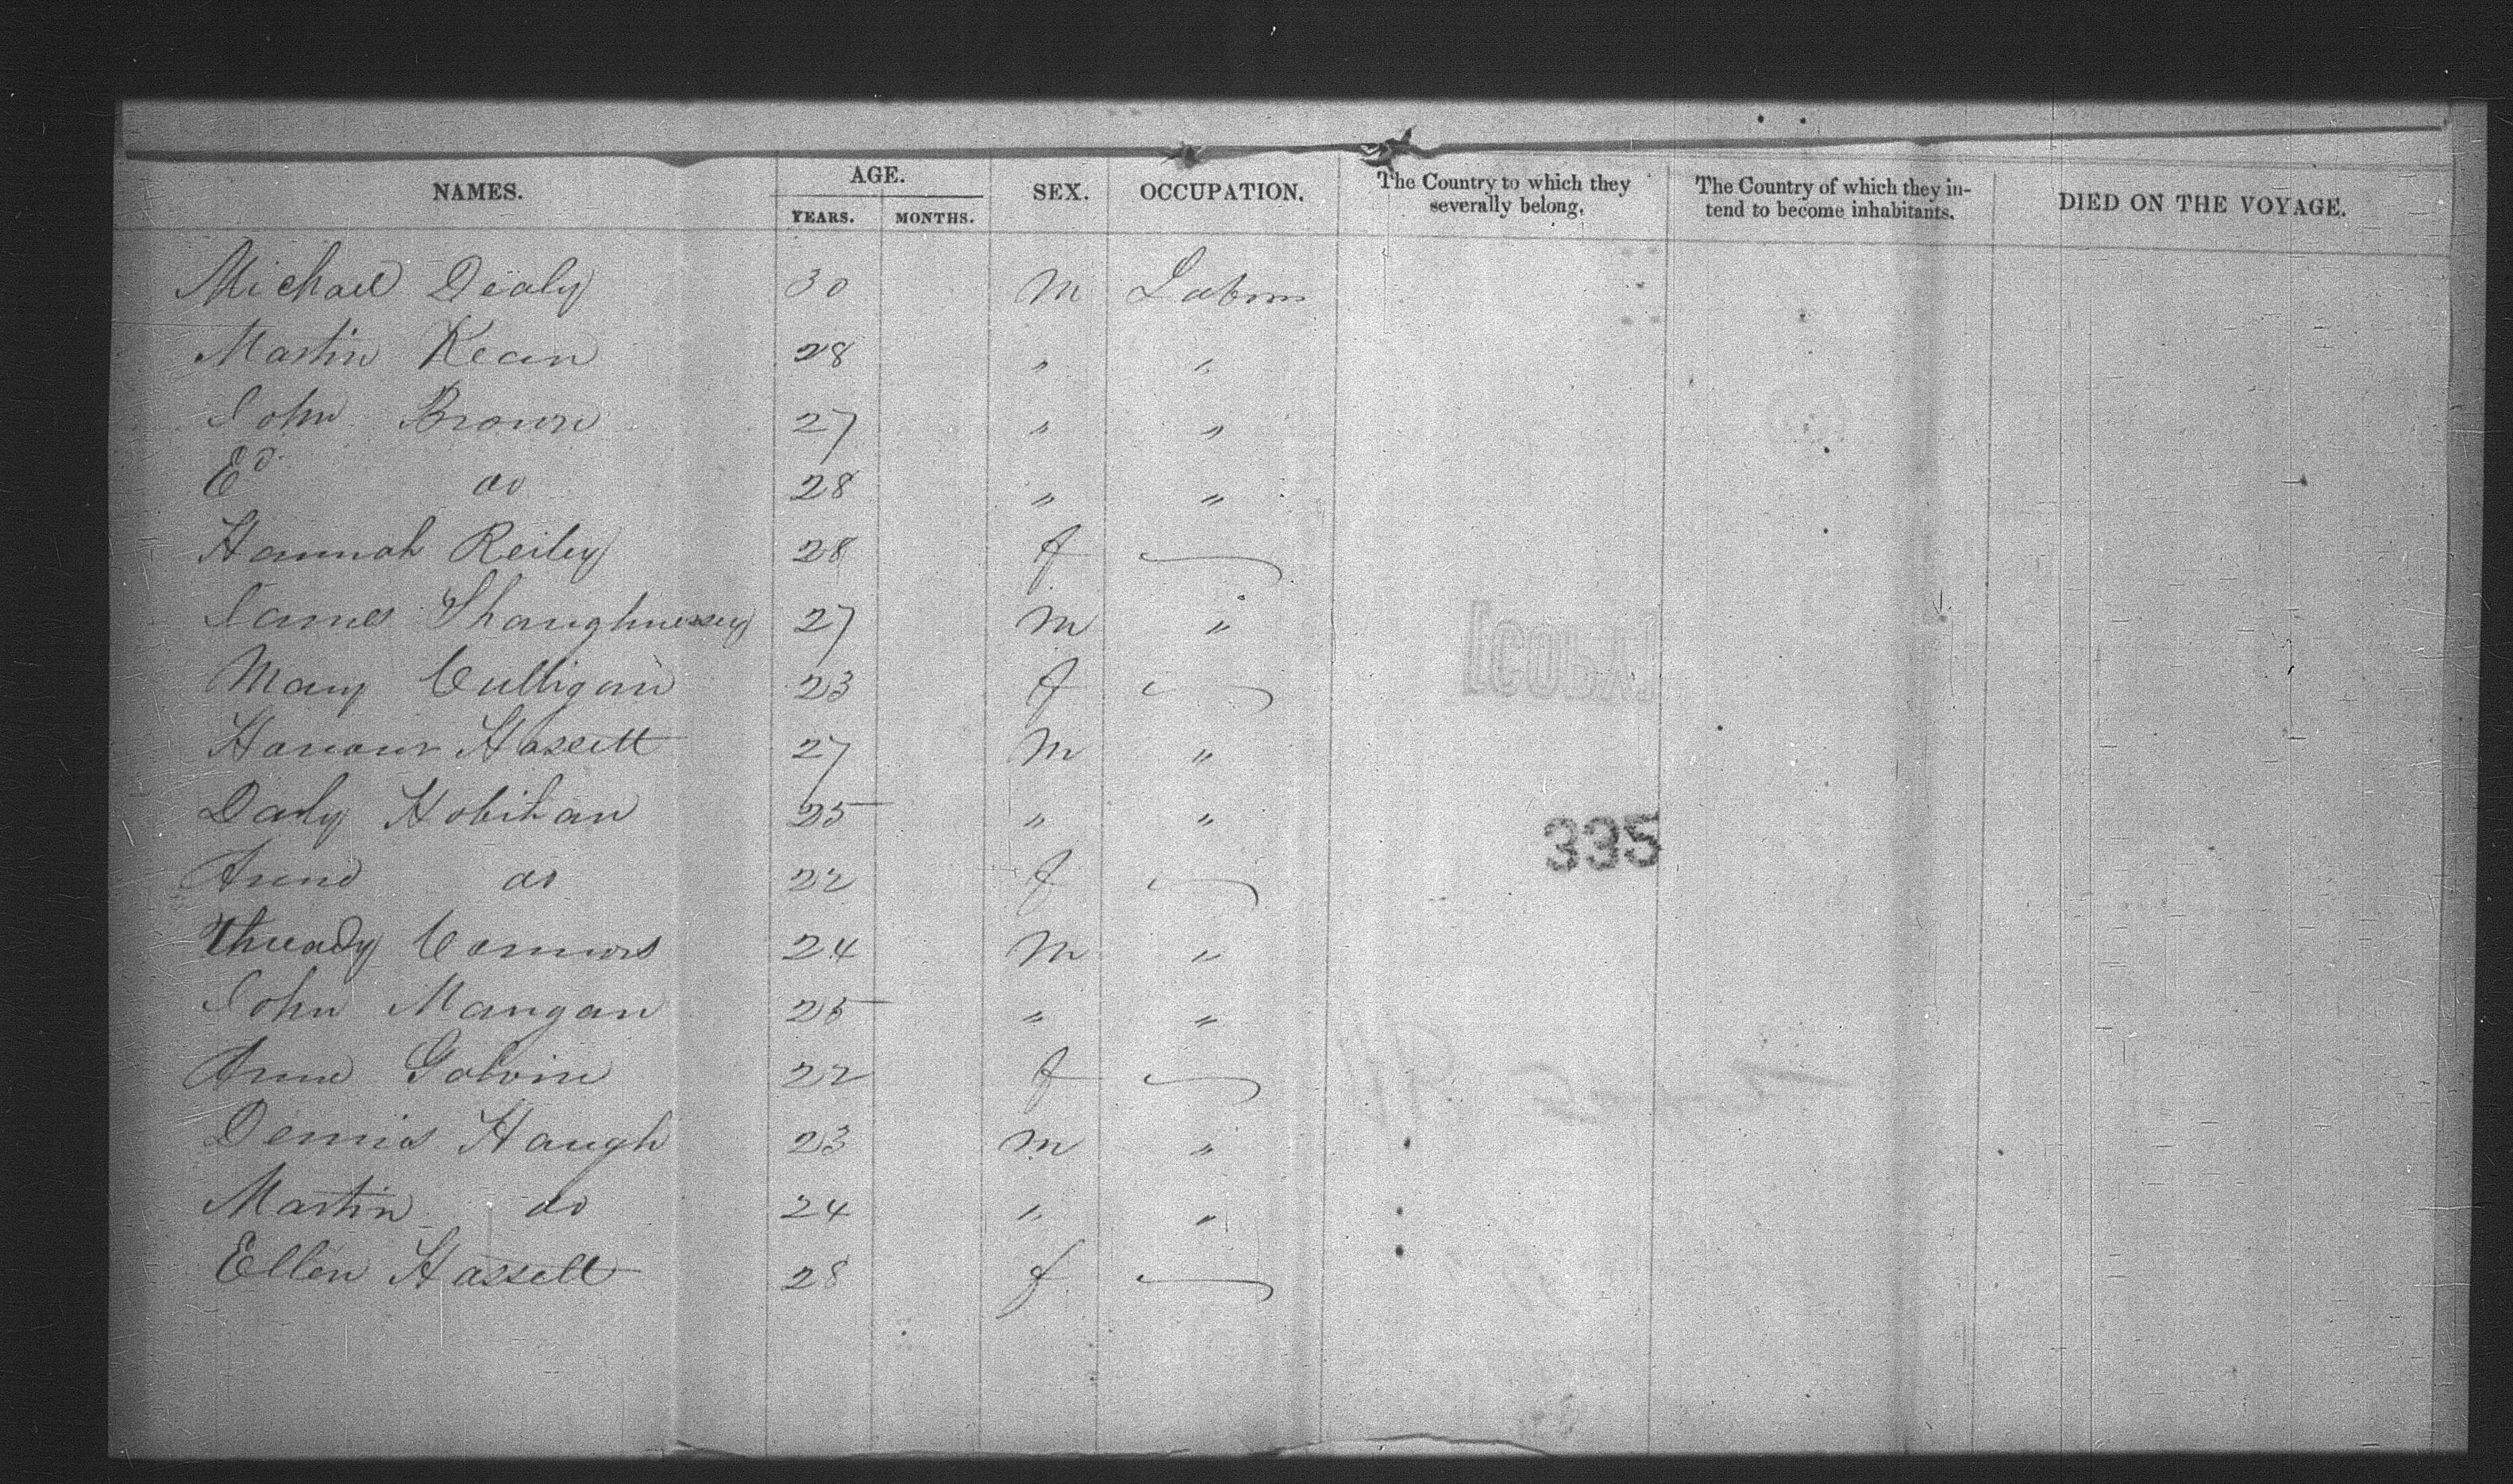 NAMES. AGE. SEX. OCCUPATION. The Country to which they severally belong, The Country of which they intend to become inhabitants. DIED ON THE VOYAGE.
YEARS. MONTHS.
Michael Dealy 30 M Labour
Martin Kean 28 " "
John Brown 27 " "
Ed do 28 " "
Hannah Reiley 28 f —
James Shaughnessy 27 M "
Mary Culligan 23 f —
Honour Hassett 27 M "
Daily Hobihan 25 " "
Anne do 22 f —
Thready Connors 24 M "
John Mangan 25 " "
Anne Galvin 22 f —
Dennis Haugh 23 M "
Martin do 24 " "
Ellen Hassett 28 f —
335